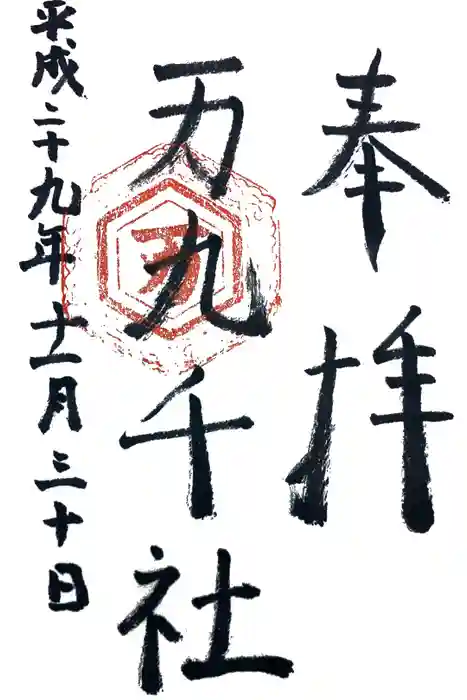 奉拝
万九千社
平成二十九年十一月三十日